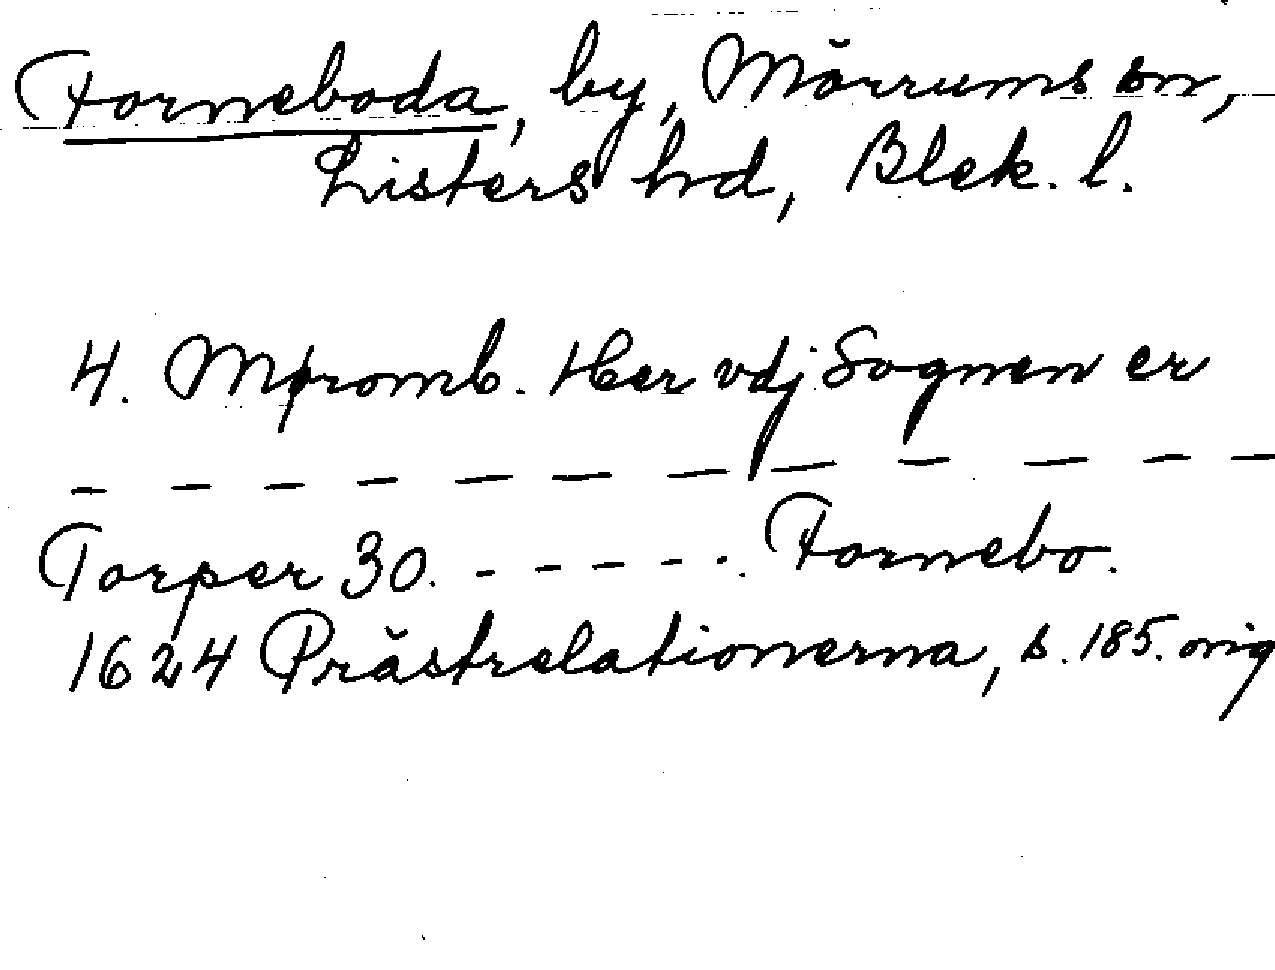 Forneboda, by, Mörrums sn,
Listers hd, Blek. l.
4. Mpromb. Her vdj Sognen er
— — — — — — — — — — —
Torper 30. - - - - - . Fornebo.
1624 Prästrelationerna, s. 185. orig